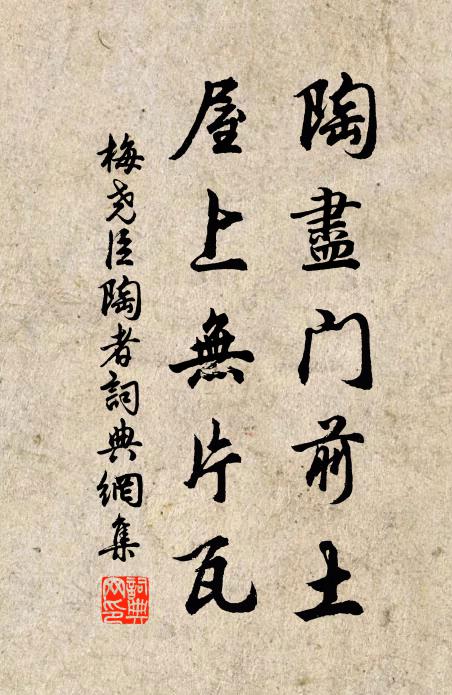 陶盡门前土
屋上無片瓦
梅尧臣陶者詞典網集
詞典网印